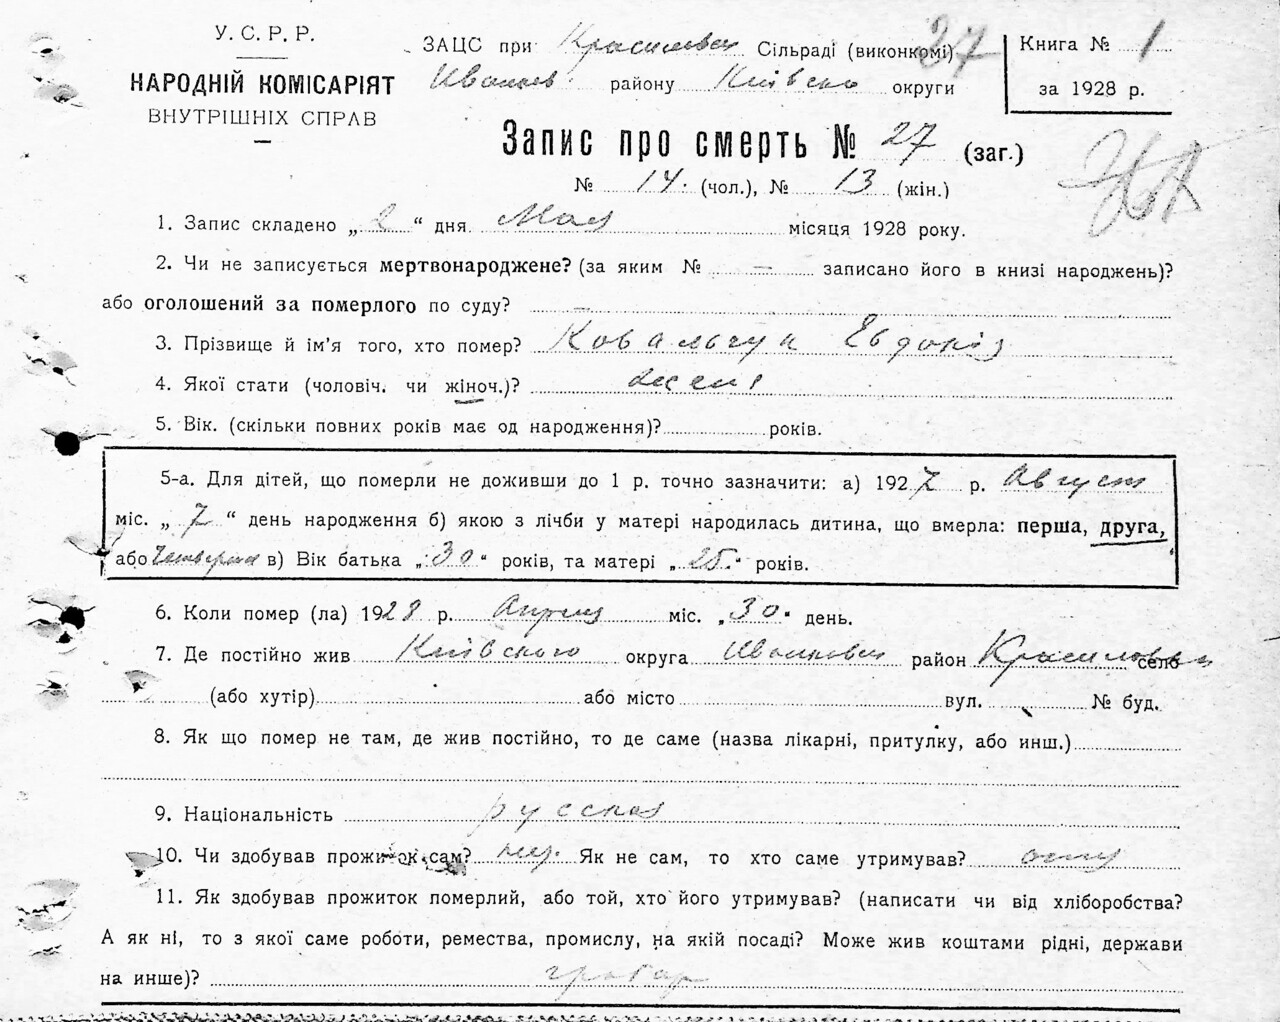 У. С. Р. Р.
НАРОДНІЙ КОМІСАРІЯТ
ВНУТРІШНІХ СПРАВ
ЗАЦС при Красиловск Сільраді (виконкомі) 27
район у Київсько округи
Книга № 1
за 1928 р.
Запис про смерть № 27 (заг.)
№ 14. (чол.), № 13 (жін.)
1. Запис складено „ 2 “ дня Мая місяця 1928 року.
2. Чи не записується мертвонароджене? (за яким № — записано його в книзі народжень)?
або оголошений за померлого по суду? —
3. Прізвище й ім'я того, хто помер? Ковальчук Евдокія
4. Якої стати (чоловіч. чи жіноч.)?
5. Вік. (скільки повних років має од народження)? років.
5-а. Для дітей, що померли не доживши до 1 р. точно зазначити: а) 1927 р. Август
міс. „ 7 “ день народження б) якою з лічби у матері народилась дитина, що вмерла: перша, друга,
або Четверта в) Вік батька „ 30 “ років, та матері „ 25. “ років.
6. Коли помер (ла) 1928 р. Апреля міс. „ 30 “ день.
7. Де постійно жив Київского округа район село
(або хутір) або місто вул. № буд.
8. Як що помер не там, де жив постійно, то де саме (назва лікарні, притулку, або инш.)
9. Національність русская
10. Чи здобував прожиток сам? Як не сам, то хто саме утримував?
11. Як здобував прожиток померлий, або той, хто його утримував? (написати чи від хліборобства?
А як ні, то з якої саме роботи, ремества, промислу, на якій посаді? Може жив коштами рідні, держави
на инше)?